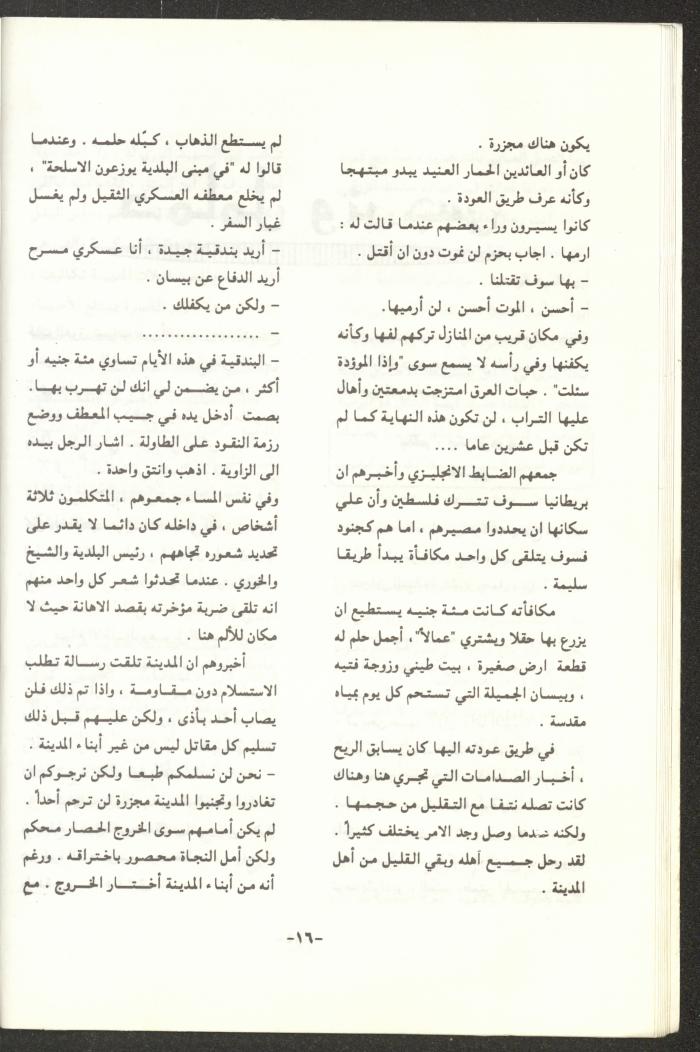 يكون هناك مجزرة .
كان أو العائدين الحمار العنيد يبدو مبتهجا
وكأنه عرف طريق العودة .
كانوا يسيرون وراء بعضهم عندما قالت له :
ارمها . اجاب بحزم لن نموت دون ان أقتل .
- بها سوف تقتلنا .
- أحسن ، الموت أحسن ، لن أرميها.
وفي مكان قريب من المنازل تركهم لفها وكأنه
يكفنها وفي رأسه لا يسمع سوى "وإذا المؤودة
سئلت" . حبات العرق امتزجت بدمعتين وأهال
عليها التراب ، لن تكون هذه النهاية كما لم
تكن قبل عشرين عاما ....
جمعهم الضابط الانجليزي وأخبرهم ان
بريطانيا سوف تترك فلسطين وأن علي
سكانها ان يحددوا مصيرهم ، اما هم كجنود
فسوف يتلقى كل واحد مكافأة يبدأ طريقا
سليمة .
مكافأته كانت مئة جنيه يستطيع ان
يزرع بها حقلا ويشتري "عمالاً"، أجمل حلم له
قطعة ارض صغيرة ، بيت طيني وزوجة فتيه
، وبيسان الجميلة التي تستحم كل يوم بمياه
مقدسة .
في طريق عودته اليها كان يسابق الريح
، أخبار الصدامات التي تجري هنا وهناك
كانت تصله نتفا مع التقليل من حجمها .
ولكنه عندما وصل وجد الامر يختلف كثيراً .
لقد رحل جميع أهله وبقي القليل من أهل
المدينة .
لم يستطع الذهاب ، كبّله حلمه . وعندما
قالوا له "في مبنى البلدية يوزعون الاسلحة" ،
لم يخلع معطفه العسكري الثقيل ولم يغسل
غبار السفر .
- أريد بندقية جيدة ، أنا عسكري مسرح
أريد الدفاع عن بيسان .
- ولكن من يكفلك .
- ..................
- البندقية في هذه الأيام تساوي مئة جنيه أو
أكثر ، من يضمن لي انك لن تهرب بها.
بصمت أدخل يده في جيب المعطف ووضع
رزمة النقود على الطاولة . اشار الرجل بيده
الى الزاوية . اذهب وانتق واحدة .
وفي نفس المساء جمعوهم ، المتكلمون ثلاثة
أشخاص ، في داخله كان دائما لا يقدر على
تحديد شعوره تجاههم ، رئيس البلدية والشيخ
والخوري . عندما تحدثوا شعر كل واحد منهم
انه تلقى ضربة مؤخرته بقصد الاهانة حيث لا
مكان للألم هنا .
أخبروهم ان المدينة تلقت رسالة تطلب
الاستسلام دون مقاومة ، واذا تم ذلك فلن
يصاب أحد بأذى ، ولكن عليهم قبل ذلك
تسليم كل مقاتل ليس من غير أبناء المدينة .
- نحن لن نسلمكم طبعا ولكن نرجوكم ان
تغادروا وتجنبوا المدينة مجزرة لن ترحم أحداً .
لم يكن أمامهم سوى الخروج الحصار محكم
ولكن أمل النجاة محصور باختراقه . ورغم
أنه من أبناء المدينة أختار الخروج . مع
-١٦-